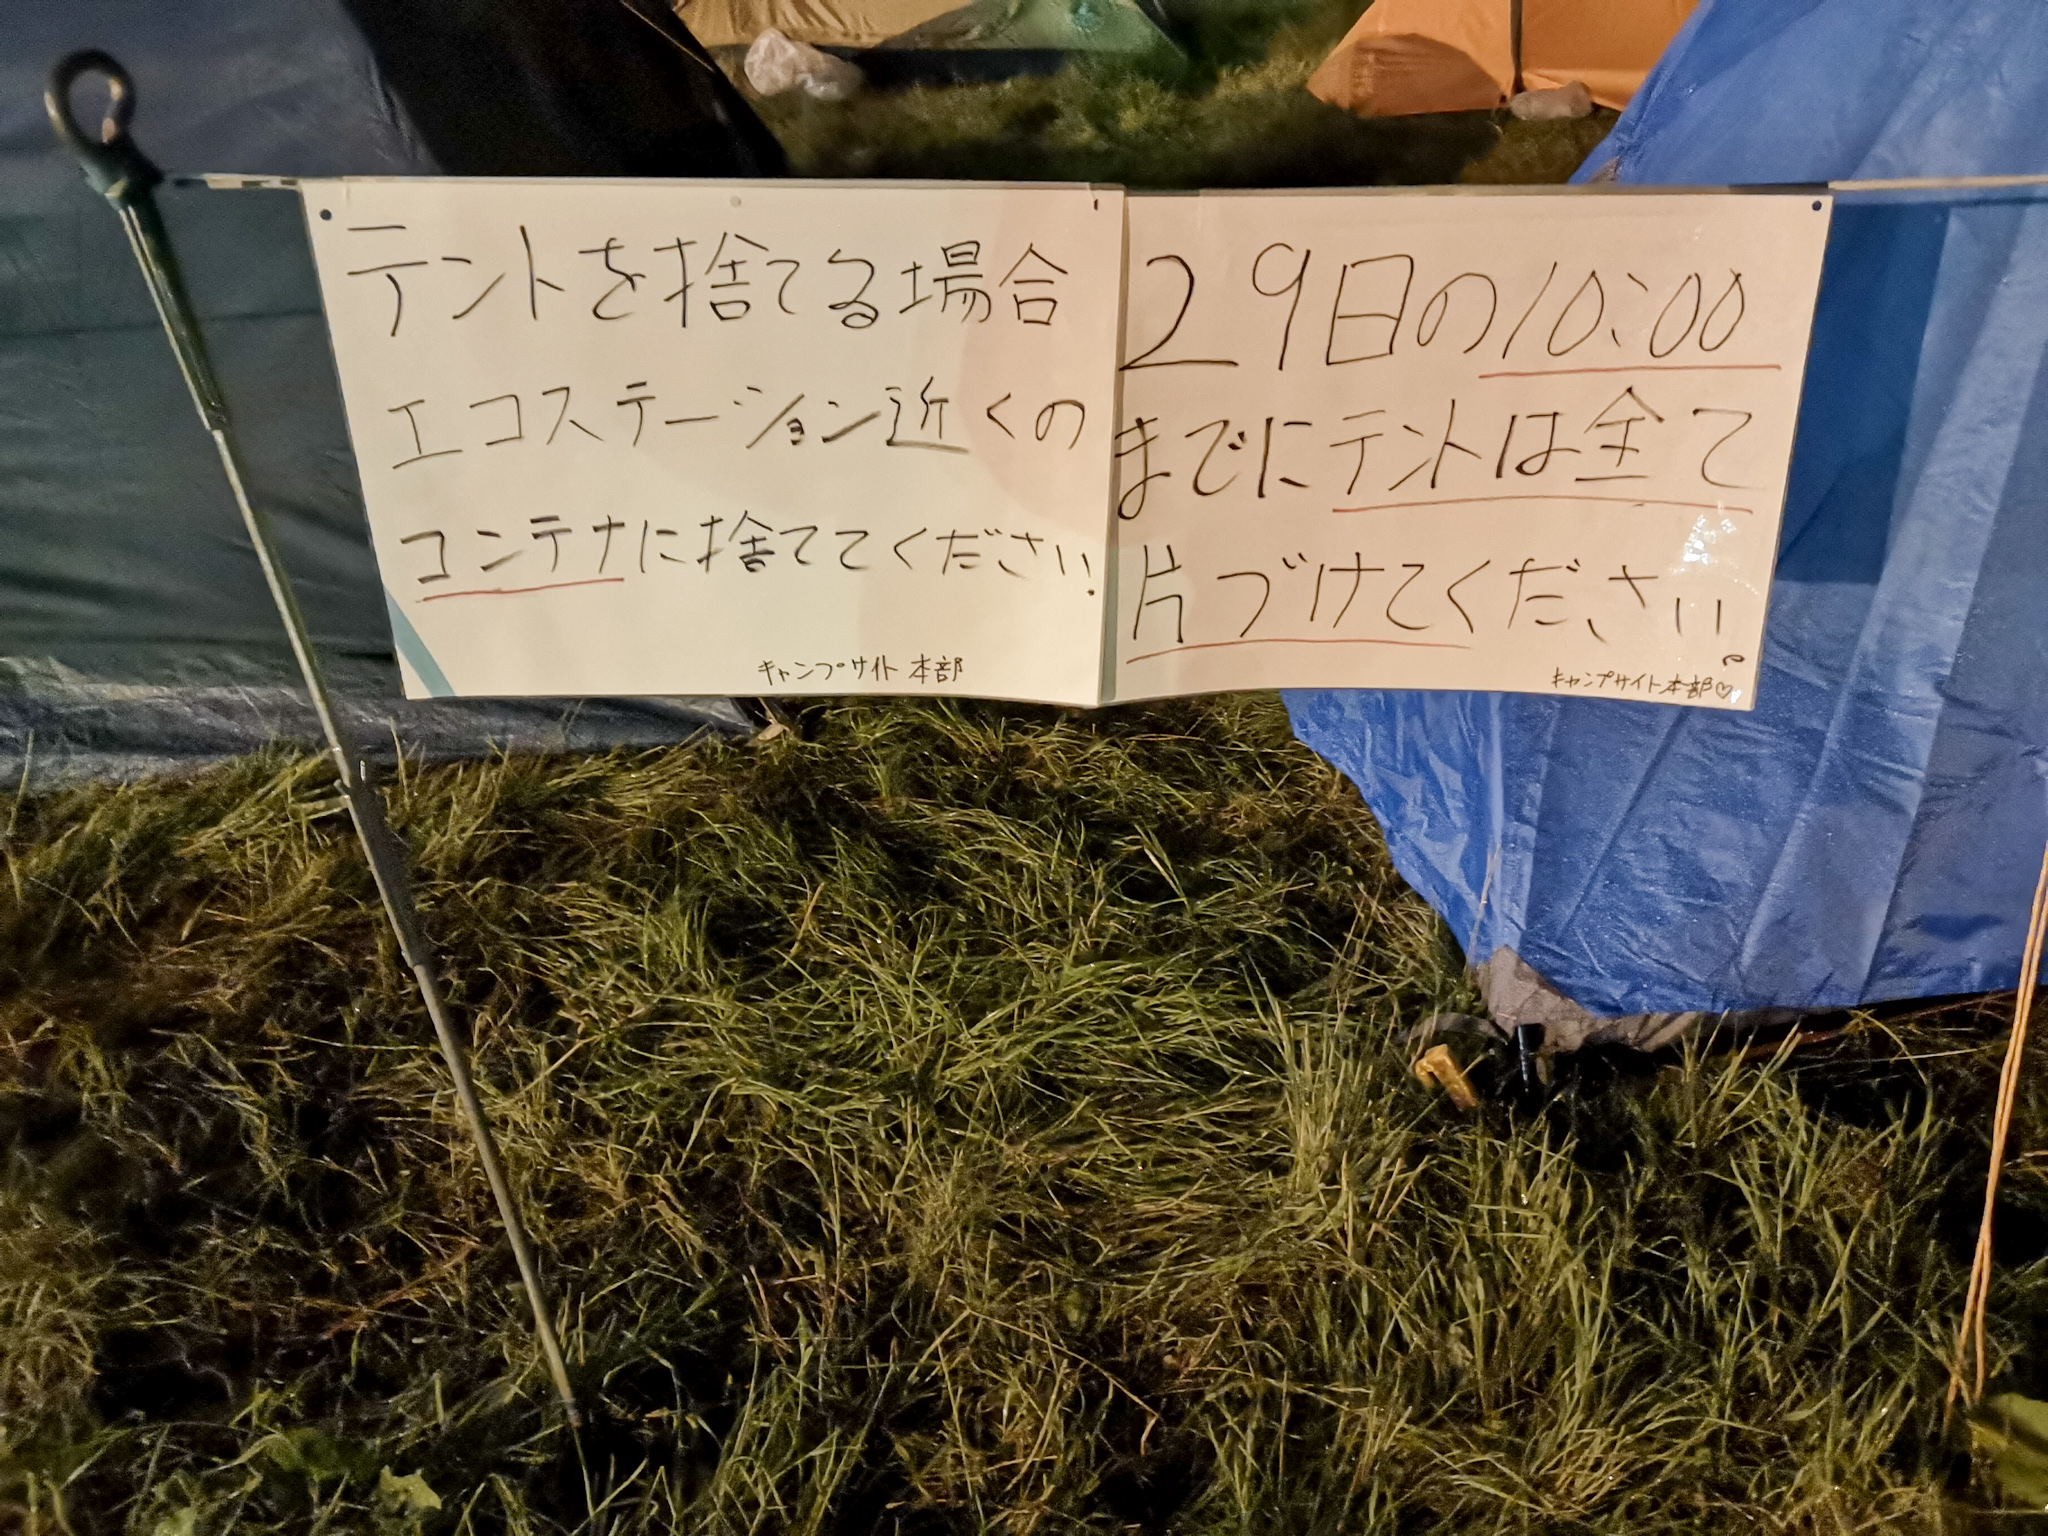 テントを捨てる場合
エコステーション近くの
コンテナに捨ててください.
キャンプサイト本部
29日の10:00
までにテントは全て
片づけてください。
キャンプサイト本部♡